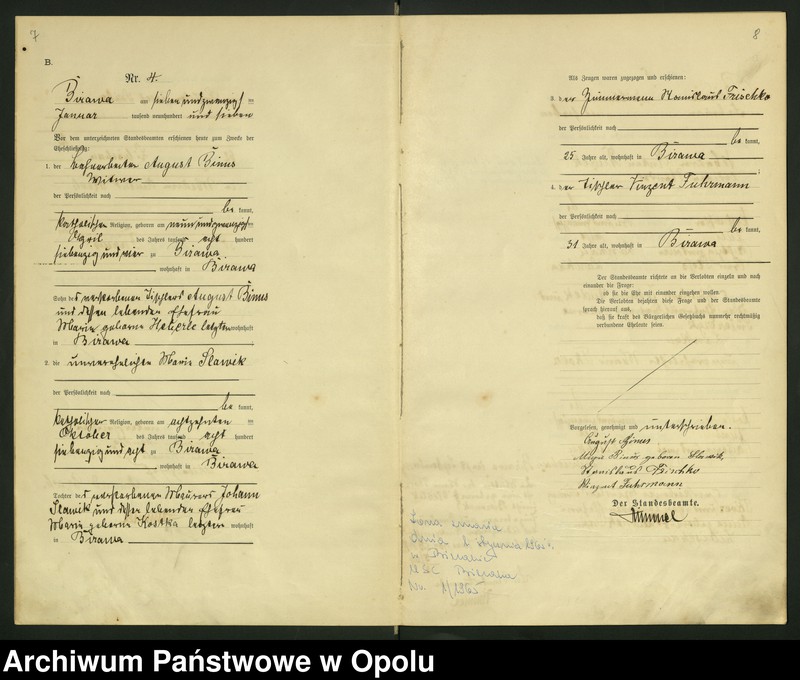 7
B.
Nr. 4.
Birawa am sieben und zwanzigsten
Januar tausend neunhundert und sieben
Vor dem unterzeichneten Standesbeamten erschienen heute zum Zwecke der
Eheschließung:
1. der Bahnarbeiter August Binus
Witwer
der Persönlichkeit nach
be kannt,
katholischer Religion, geboren am neun und zwanzigsten
April des Jahres tausend acht hundert
siebenzig und vier zu Birawa
, wohnhaft in Birawa
Sohn des verstorbenen Tischlers August Binus
und dessen lebender Ehefrau
Maria geborne Heberle letztere wohnhaft
in Birawa
2. die unverehelichte Maria Slawik
der Persönlichkeit nach
be kannt,
katholischer Religion, geboren am achtzehnten
Oktober des Jahres tausend acht hundert
siebenzig und acht zu Birawa
, wohnhaft in Birawa
Tochter des verstorbenen Maurers Johann
Slawik und dessen lebender Ehefrau
Maria geborne Kostka letztere wohnhaft
in Birawa
8
Als Zeugen waren zugezogen und erschienen:
3. der Zimmermann Stanislaus Frischko
der Persönlichkeit nach
be kannt,
25 Jahre alt, wohnhaft in Birawa
;
4. der Tischler Vinzent Fuhrmann
der Persönlichkeit nach
be kannt,
31 Jahre alt, wohnhaft in Birawa
Der Standesbeamte richtete an die Verlobten einzeln und nach
einander die Frage:
ob sie die Ehe mit einander eingehen wollen.
Die Verlobten bejahten diese Frage und der Standesbeamte
sprach hierauf aus,
daß sie kraft des Bürgerlichen Gesetzbuchs nunmehr rechtmäßig
verbundene Eheleute seien.
Vorgelesen, genehmigt und unterschrieben.
August Binus
Maria Binus geboren Slawik
Stanislaus Frischko
Vinzent Fuhrmann
Der Standesbeamte.
Himmel
Żona zmarła
dnia 1 stycznia 1965 r.
w
USC
Nr. 1/1965
Archiwum Państwowe w Opolu